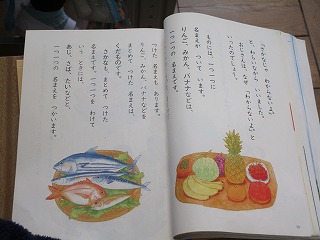 「さかなじゃ わからないよ。」
と、わらいながら いいました。
おじさんは、なぜ「わからないよ」と
いったのでしょう。
ものには、一つ一つに
名まえが ついて います。
りんご、みかん、バナナなどは、
一つ一つの 名まえです。
つけた 名まえも あります。
りんご、みかん、バナナなどを
まとめて つけた 名まえは、
くだものです。
さかなも、まとめて つけた
名まえです。一つ一つを わけて
いう ときには、
あじ、さば、たいなどと、
一つ一つの 名まえを つかいます。